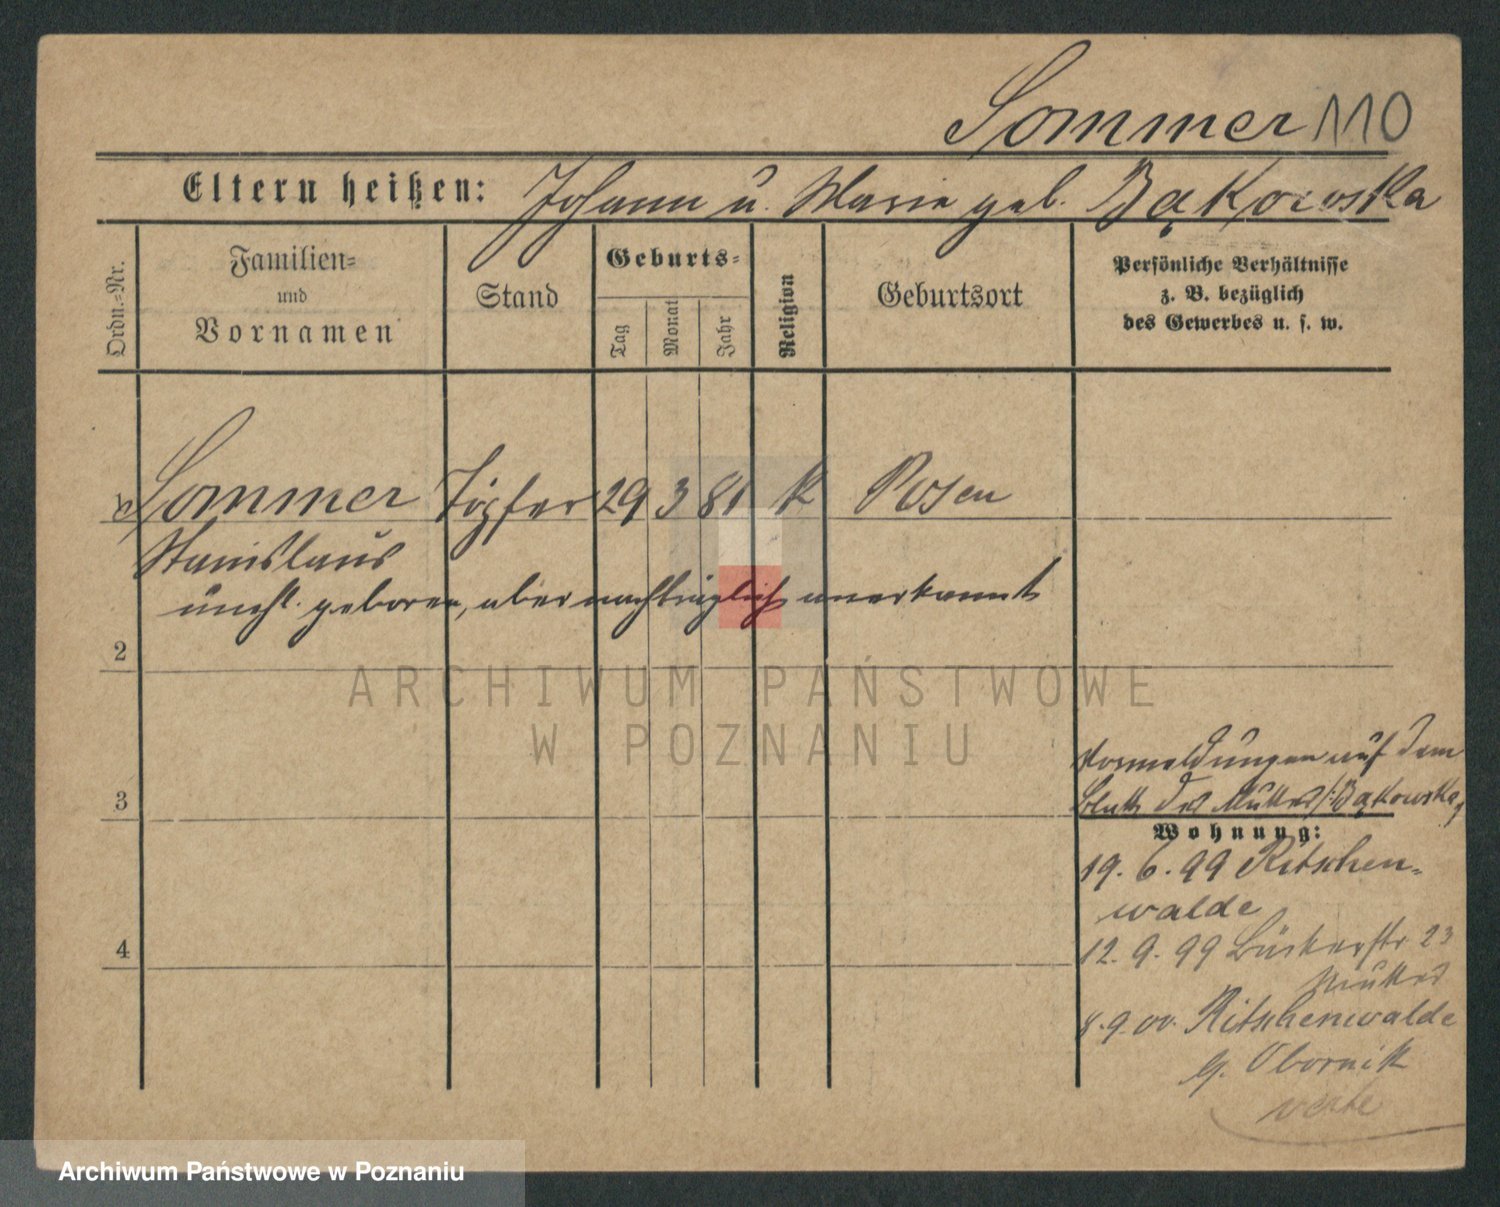 Sommer 110
Eltern heißen: Johann u. Marie geb. Bąkowska
Ordn.-Nr.
Familien-
und
Vornamen
Stand
Geburts-
Tag
Monat
Jahr
Religion
Geburtsort
Persönliche Verhältnisse
z. B. bezüglich
des Gewerbes u. s. w.
Sommer Töpfer 29 3 81 k Posen
Stanislaus
unehl. geboren, aber nachträglich anerkannt
2
ARCHIWUM PAŃSTWOWE
W POZNANIU
3
Vormeldungen auf dem
Blatt der Mutter Bąkowska
Wohnung:
19. 6. 99 Ritschen-
walde
4
12. 9. 99 Bäckerstr 23
Mutter
8. 9. 00. Ritschenwalde
Obornik
verte
Archiwum Państwowe w Poznaniu